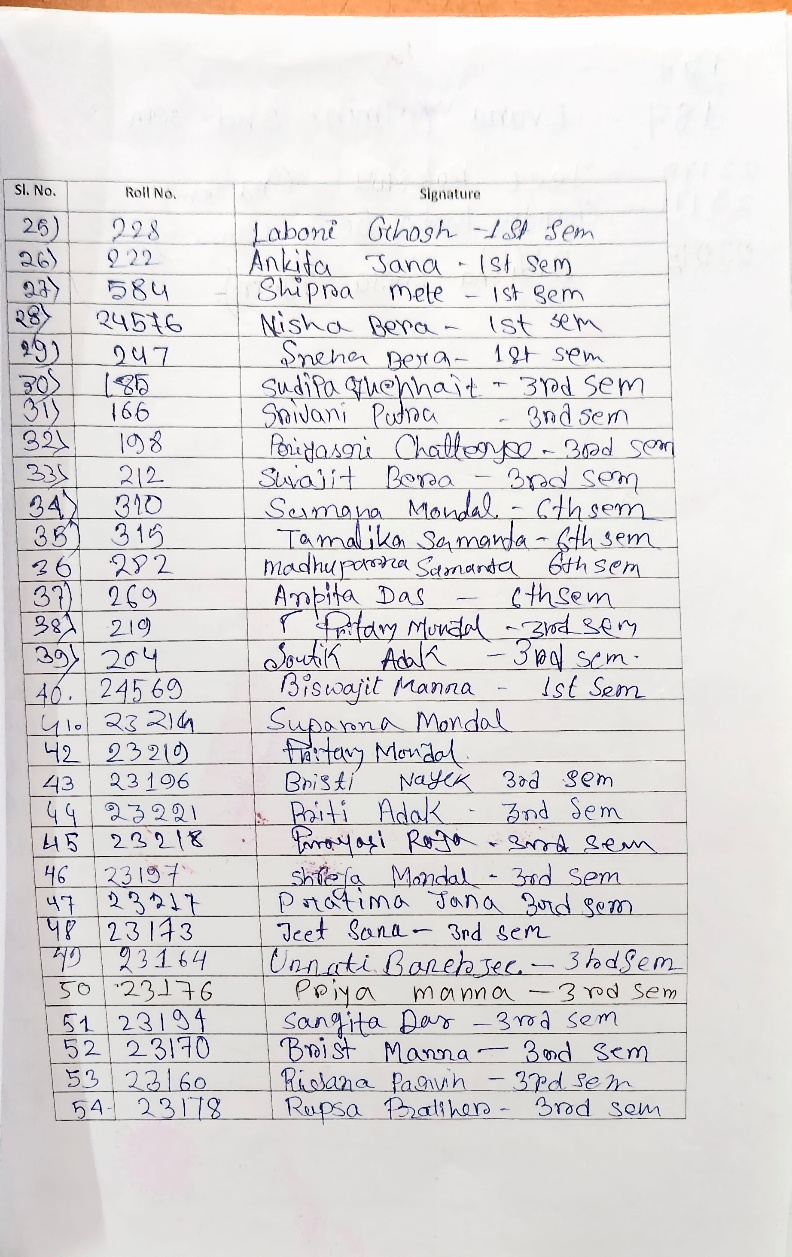 Sl. No. Roll No. Signature
25) 228 Laboni Ghosh - 1st Sem
26) 222 Ankita Jana - 1st Sem
27) 584 Shipra mete - 1st Sem
28) 24576 Nisha Bera - 1st sem
29) 247 Sneha Bera - 1st sem
30) 185 Sudipa - 3rd Sem
31) 166 Srivani Patra - 3rd sem
32) 198 Priyasri Chatterjee - 3rd sem
33) 212 Suvajit Bera - 3rd sem
34) 310 Sumana Mondal - 6th sem
35) 315 Tamalika Samanta - 6th sem
36 282 madhuparna Samanta 6th sem
37) 269 Arpita Das - 6th sem
38) 219 Pritam Mondal - 3rd sem
39) 204 Soutik Adak - 3rd sem.
40. 24569 Biswajit Manna - 1st Sem
41. 23214 Suparna Mondal
42 23219 Pritam Mondal.
43 23196 Bristi Nayek 3rd sem
44 23221 Priti Adak - 3rd Sem
45 23218 - 3rd sem
46 23197 Mondal - 3rd Sem
47 23217 Pratima Jana 3rd sem
48 23173 Jeet Sana - 3rd sem
49 23164 Unnati Banerjee. - 3rd Sem
50 23176 Priya manna - 3rd sem
51 23194 Sangita Das - 3rd sem
52 23170 Brist Manna - 3rd sem
53 23160 - 3rd sem
54. 23178 Rupsa - 3rd sem